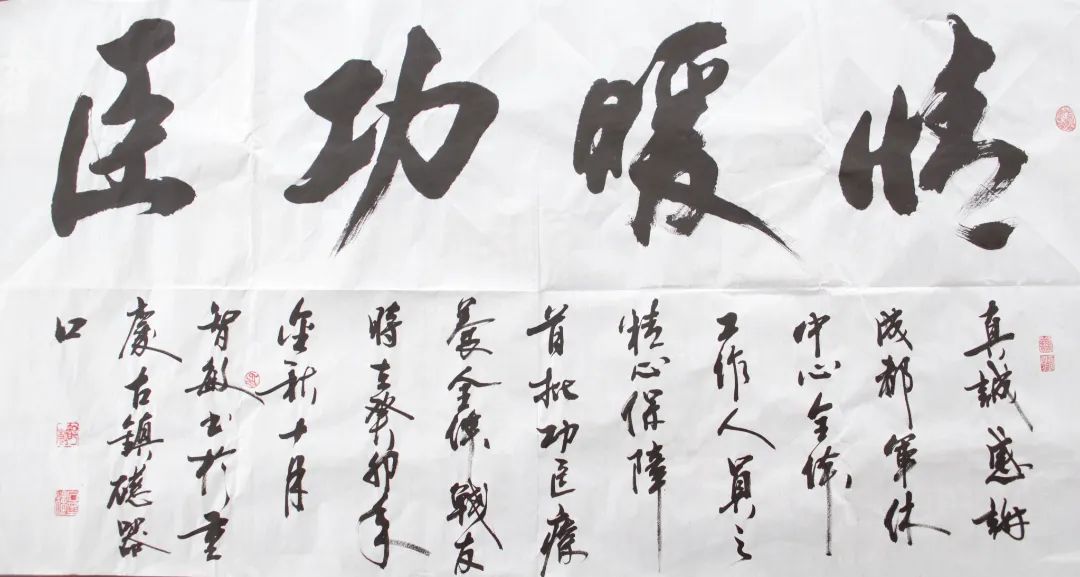 情暖功臣
真誠感謝
成都軍休
中心全体
工作人員之
精心保障
首批功臣療
養全体戰友
時在癸卯年
金秋十月
智敏书於重
慶古鎮磁器
口